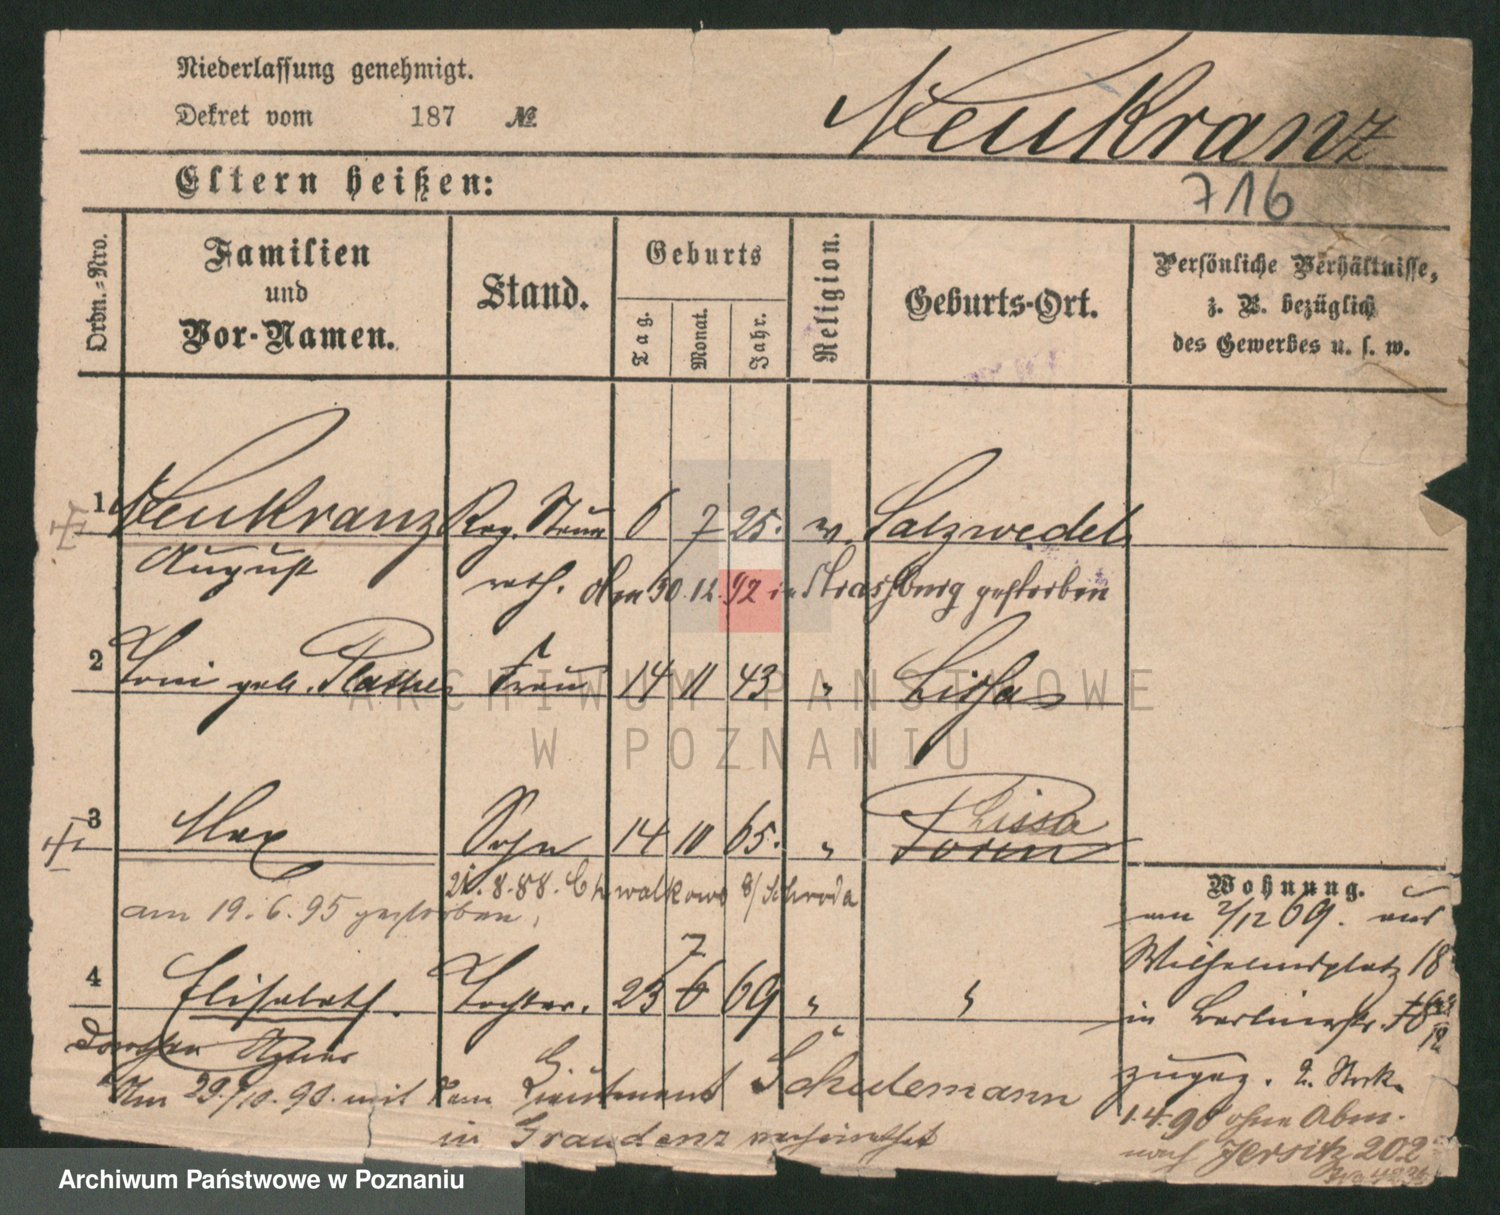 Niederlassung genehmigt.
Dekret vom 187 №
Neukranz
716
Eltern heißen:
Ordn.-Nro.
Familien
und
Vor-Namen.
Stand.
Geburts
Tag.
Monat.
Jahr.
Religion.
Geburts-Ort.
Persönliche Verhältnisse,
z. B. bezüglich
des Gewerbes u. s. w.
1 Neukranz Reg. 6 7 25. Salzwedel
August rath. den 30.12.92 in Strassburg gestorben
2 Toni geb. Frau 14 11 43 " Lissa
ARCHIWUM PAŃSTWOWE
W POZNANIU
3 Max Sohn 14 10 65. " Lissa
21.8.88. Chwalkowo b/ Schroda
am 19.6.95 gestorben.
7
4 Elisabeth. Tochter. 25 6 69 " "
Dorothea Agnes
Am 29./10.90. mit dem Lieutenant Schulemann
in Graudenz verheirathet
Wohnung.
am 2/12 69. aus
Wilhelmsplatz 18
in Berlinerstr.
zugez. 2. Stock.
1.4.90 ohne Abm.
nach Jersitz 202
Archiwum Państwowe w Poznaniu